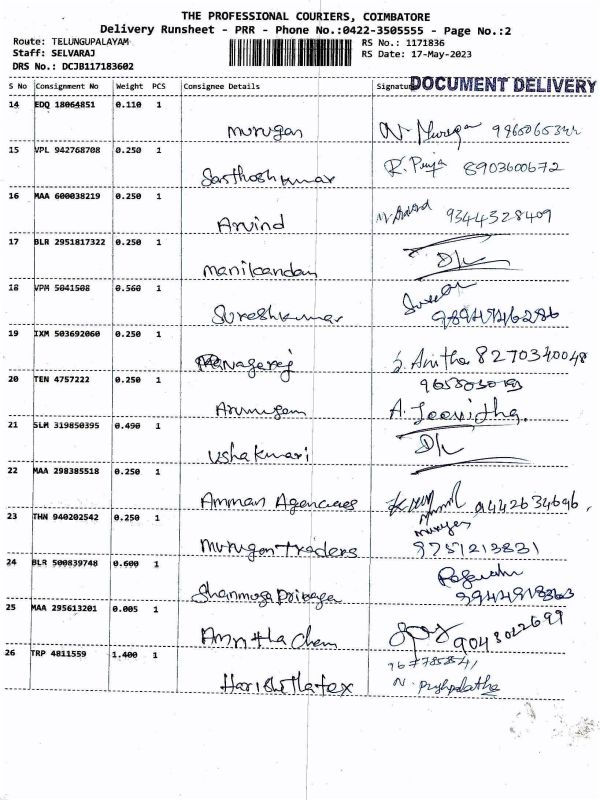 THE PROFESSIONAL COURIERS, COIMBATORE
Delivery Runsheet - PRR - Phone No.:0422-3505555 - Page No.:2
Route: TELUNGUPALAYAM
RS No.: 1171836
Staff: SELVARAJ
RS Date: 17-May-2023
DRS No.: DCJB117183602
S No Consignment No Weight PCS Consignee Details Signature
DOCUMENT DELIVERY
14 EDQ 18064851 0.110 1
Murugan N. Murugan
15 VPL 942768708 0.250 1
Santhoshkumar R. Priya 8903600672
16 MAA 600038219 0.250 1
Arvind 9344328409
17 BLR 2951817322 0.250 1
Manikandan
18 VPM 5041508 0.560 1
Sureshkumar
19 IXM 503692060 0.250 1
Nagaraj S. Anitha 8270340048
20 TEN 4757222 0.250 1
Arumugam A.
21 SLM 319850395 0.490 1
Ushakumari
22 MAA 298385518 0.250 1
Amman Agencies
23 THN 940202542 0.250 1
Murugan Traders 9751213831
24 BLR 500839748 0.600 1
Shanmuga Priyaga
25 MAA 295613201 0.005 1
Amritha Chem 9043022699
26 TRP 4811559 1.400 1
Harish Latex N. Pushpalatha